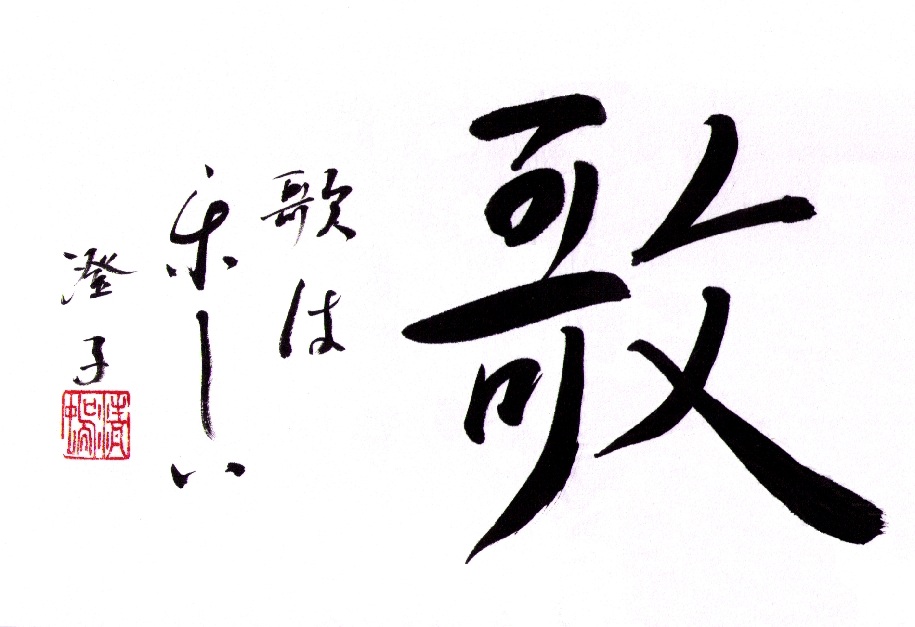 歌
歌は
楽しい
澄子